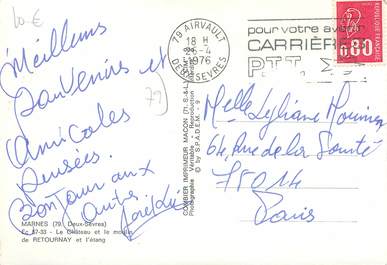 10 €
Meilleurs
Souvenirs et
Amicales
Pensées.
Bonjour aux
amis.
79
79 AIRVAULT
18 H
26-4
1976
DEUX-SEVRES
pour votre avenir
CARRIÈRES
PTT
0.80
COMBIER IMPRIMEUR MACON (T. S.&L.)
Photographie Véritable - Reproduction
© by S.P.A.D.E.M. - 9
Melle Lyliane
64, Rue de la Santé
75014
Paris
MARNES (79. Deux-Sèvres)
Le Château et le moulin
de RETOURNAY et l'étang